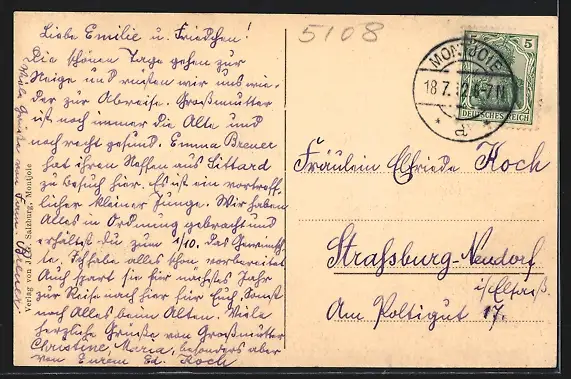 Liebe Emilie u. Friedchen!
Die schönen Tage gehen zur
Neige und rüsten wir uns wie-
der zur Abreise. Großmutter
ist noch immer die Alte und
noch recht gesund. Emma Breuer
hat ihren Neffen aus Sittard
zu Besuch hier. Es ist ein vortreff-
licher kleiner Junge. Wir haben
Alles in Ordnung gebracht und
erhältst du zum 1/10. das Gewünsch-
te. Ich habe alles schon vorbereitet
Auch spart sie für nächstes Jahr
zur Reise nach hier für Euch. Sonst
noch Alles beim Alten. Viele
herzliche Grüsse von Großmutter
Christine, Maria, besonders aber
von Eurem Ed. Koch
Viele Grüsse von Fam. Breuer.
Verlag von Salzburg, Montjoie
5108
MONTJOIE
18.7.12.6-7N
* a *
5
DEUTSCHES REICH
Fräulein Elfriede Koch
Strassburg-Neudorf
i/Elsaß.
Am Poltigut 17.